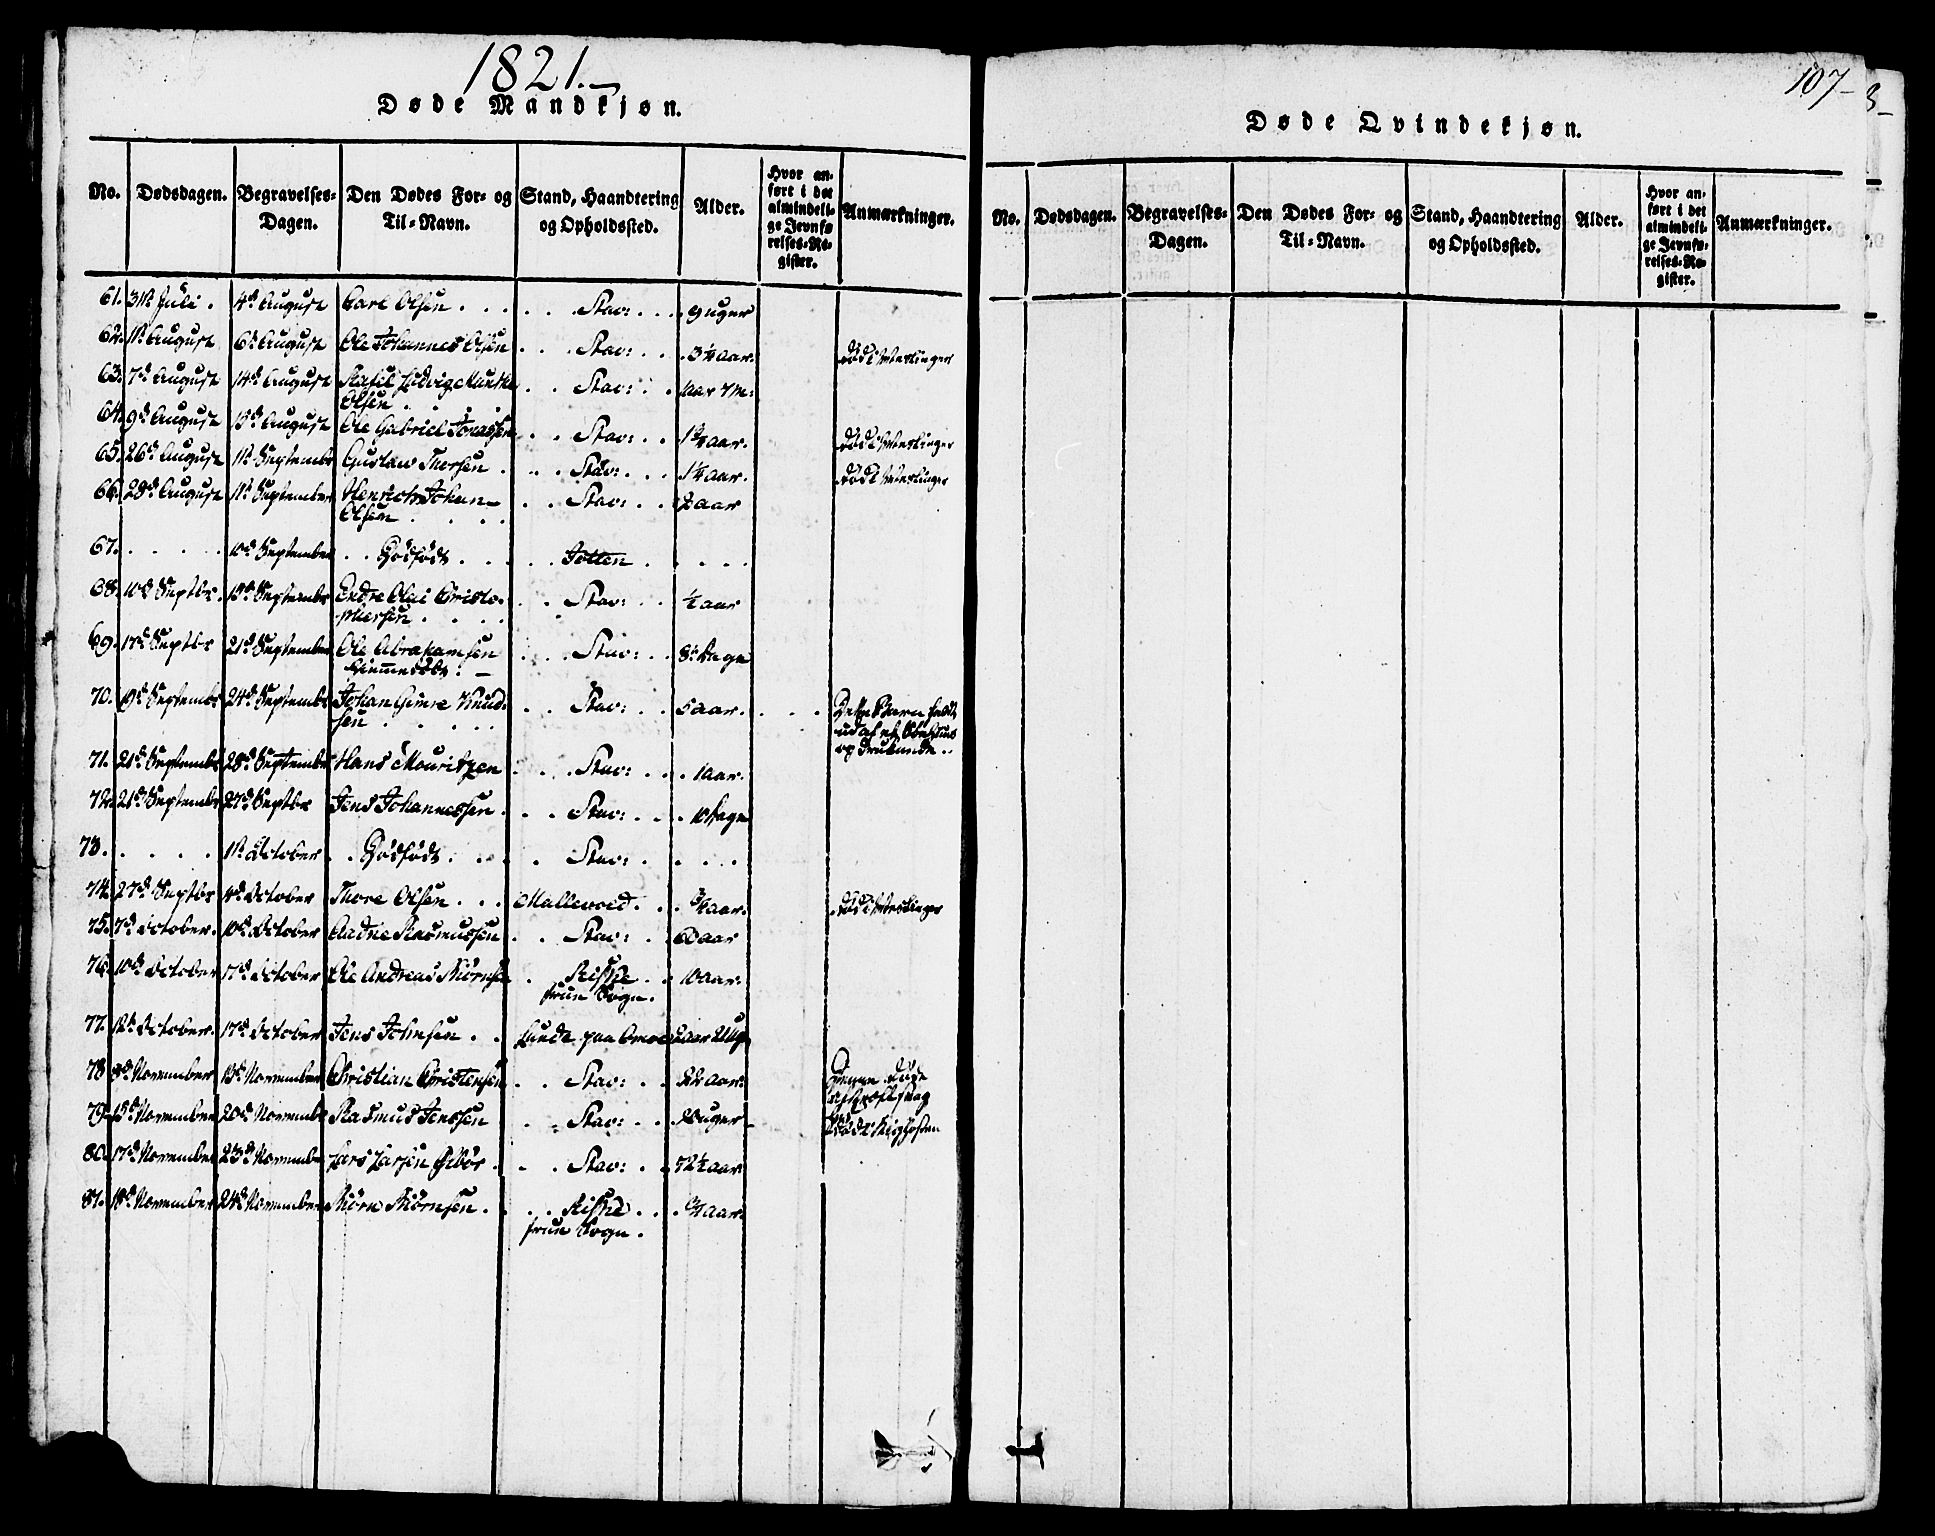 1821.
Døde Mandkjøn.
No. Dødsdagen. Begravelses-Dagen. Den Dødes For- og Til-Navn. Stand, Haandtering og Opholdssted. Alder. Hvor anført i det almindelige Jevnførelses-Register. Anmærkninger.
61. 31te Juli. 4de August Carl Olsen . . . Stav: . . 9 uger
62. 1te August 6te August Ole Johannes Olsen . . . Stav: . . 3 1/4 aar. død i Mæslinger
63. 7de August 14de August Ludvig . . Stav: . . 1 aar 7 M:
Olsen . .
64. 9de August August Ole Gabriel Jonassen . . Stav: . . aar. død i Mæslinger
65. 26de August 11te Septembr Gustav Thorsen . . . Stav: . . 1 1/4 aar. død i Mæslinger
66. 28de August 11te September Henrich Johan . . Stav: . . 1/2 aar
Olsen . . . .
67. . . . . 10de September . . Dödfödt . . . . . Jotten . . . . .
68. 10de Septbr. 13de Septembr Endre Olai Christo- . . Stav: . . 1/2 aar
phersen . . . .
69. 17de Septbr 21de September Ole Abrahamsen . . . Stav: . . 8te dage
Hiemmedöbt. –
70. 19de Septembr 24de Septembr Johan Knud- . . Stav: . . 5 aar. . . . Dette Barn faldt
sen . . . . . ud af et Søehuus
og druknede ..
71. 21de Septembr 28de Septembr Hans Mouritzen . . . Stav: . . . 1 aar.
72. 21de Septembr 27de Septbr Jens Johannessen . . . Stav: . . . 10 dage
73. . . . . 1te October . . Dödfödt . . . . Stav: . . . . .
74. 27de Septbr 4de October Thore Olsen . . . Mallevold. . . 3/4 aar. . død i Mæslinger
75. 7de October. 10de October Aadne Rasmussen . . Stav: . . 60 aar
76. 10de October 17de October Ole Andreas Biörnsen . Riskke . . 10 aar.
frue Sogn.
77. 12te October. 17de October Jens Johnsen . . Lunde paa Omoe 2 aar
78. November 13de November Christian Christensen . . Stav: . . aar. Denne døde
79. 15de November 20de Novembr Rasmus Jenssen . . Stav: . . uger døde Kighosten
80. 17de November 23de Novembr Lars Larsen . . . Stav: . . 72 1/2 aar
81. 18de November 24de November Biörn Biörnsen . . . . . . 3/4 aar.
frue Sogn.
107-
3-
Døde Qvindekjøn.
No. Dødsdagen. Begravelses-Dagen. Den Dødes For- og Til-Navn. Stand, Haandtering og Opholdssted. Alder. Hvor anført i det almindelige Jevnførelses-Register. Anmærkninger.